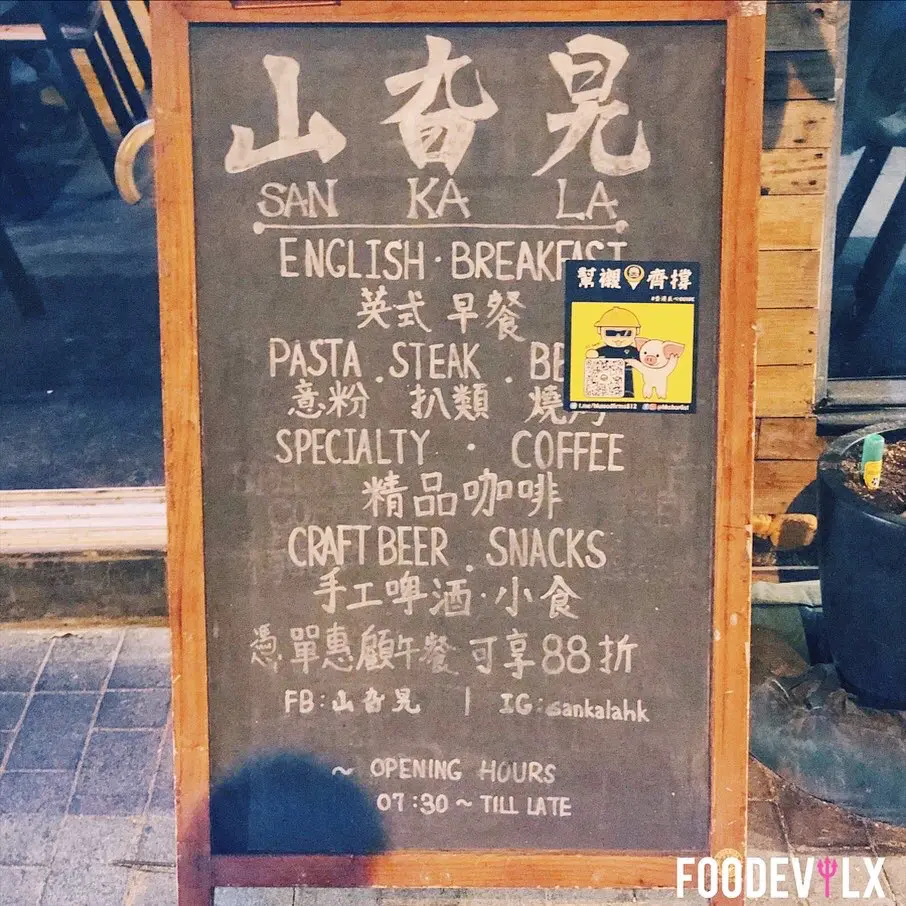 山旮晃
SAN KA LA
ENGLISH · BREAKFAST
英式早餐
幫襯 齊撐
PASTA . STEAK .
意粉 扒類 燒
SPECIALTY · COFFEE
精品咖啡
CRAFT BEER . SNACKS
手工啤酒·小食
憑單惠顧午餐可享88折
FB:山旮晃 | IG:sankalahk
~ OPENING HOURS
07:30 ~ TILL LATE
FOODEVILX